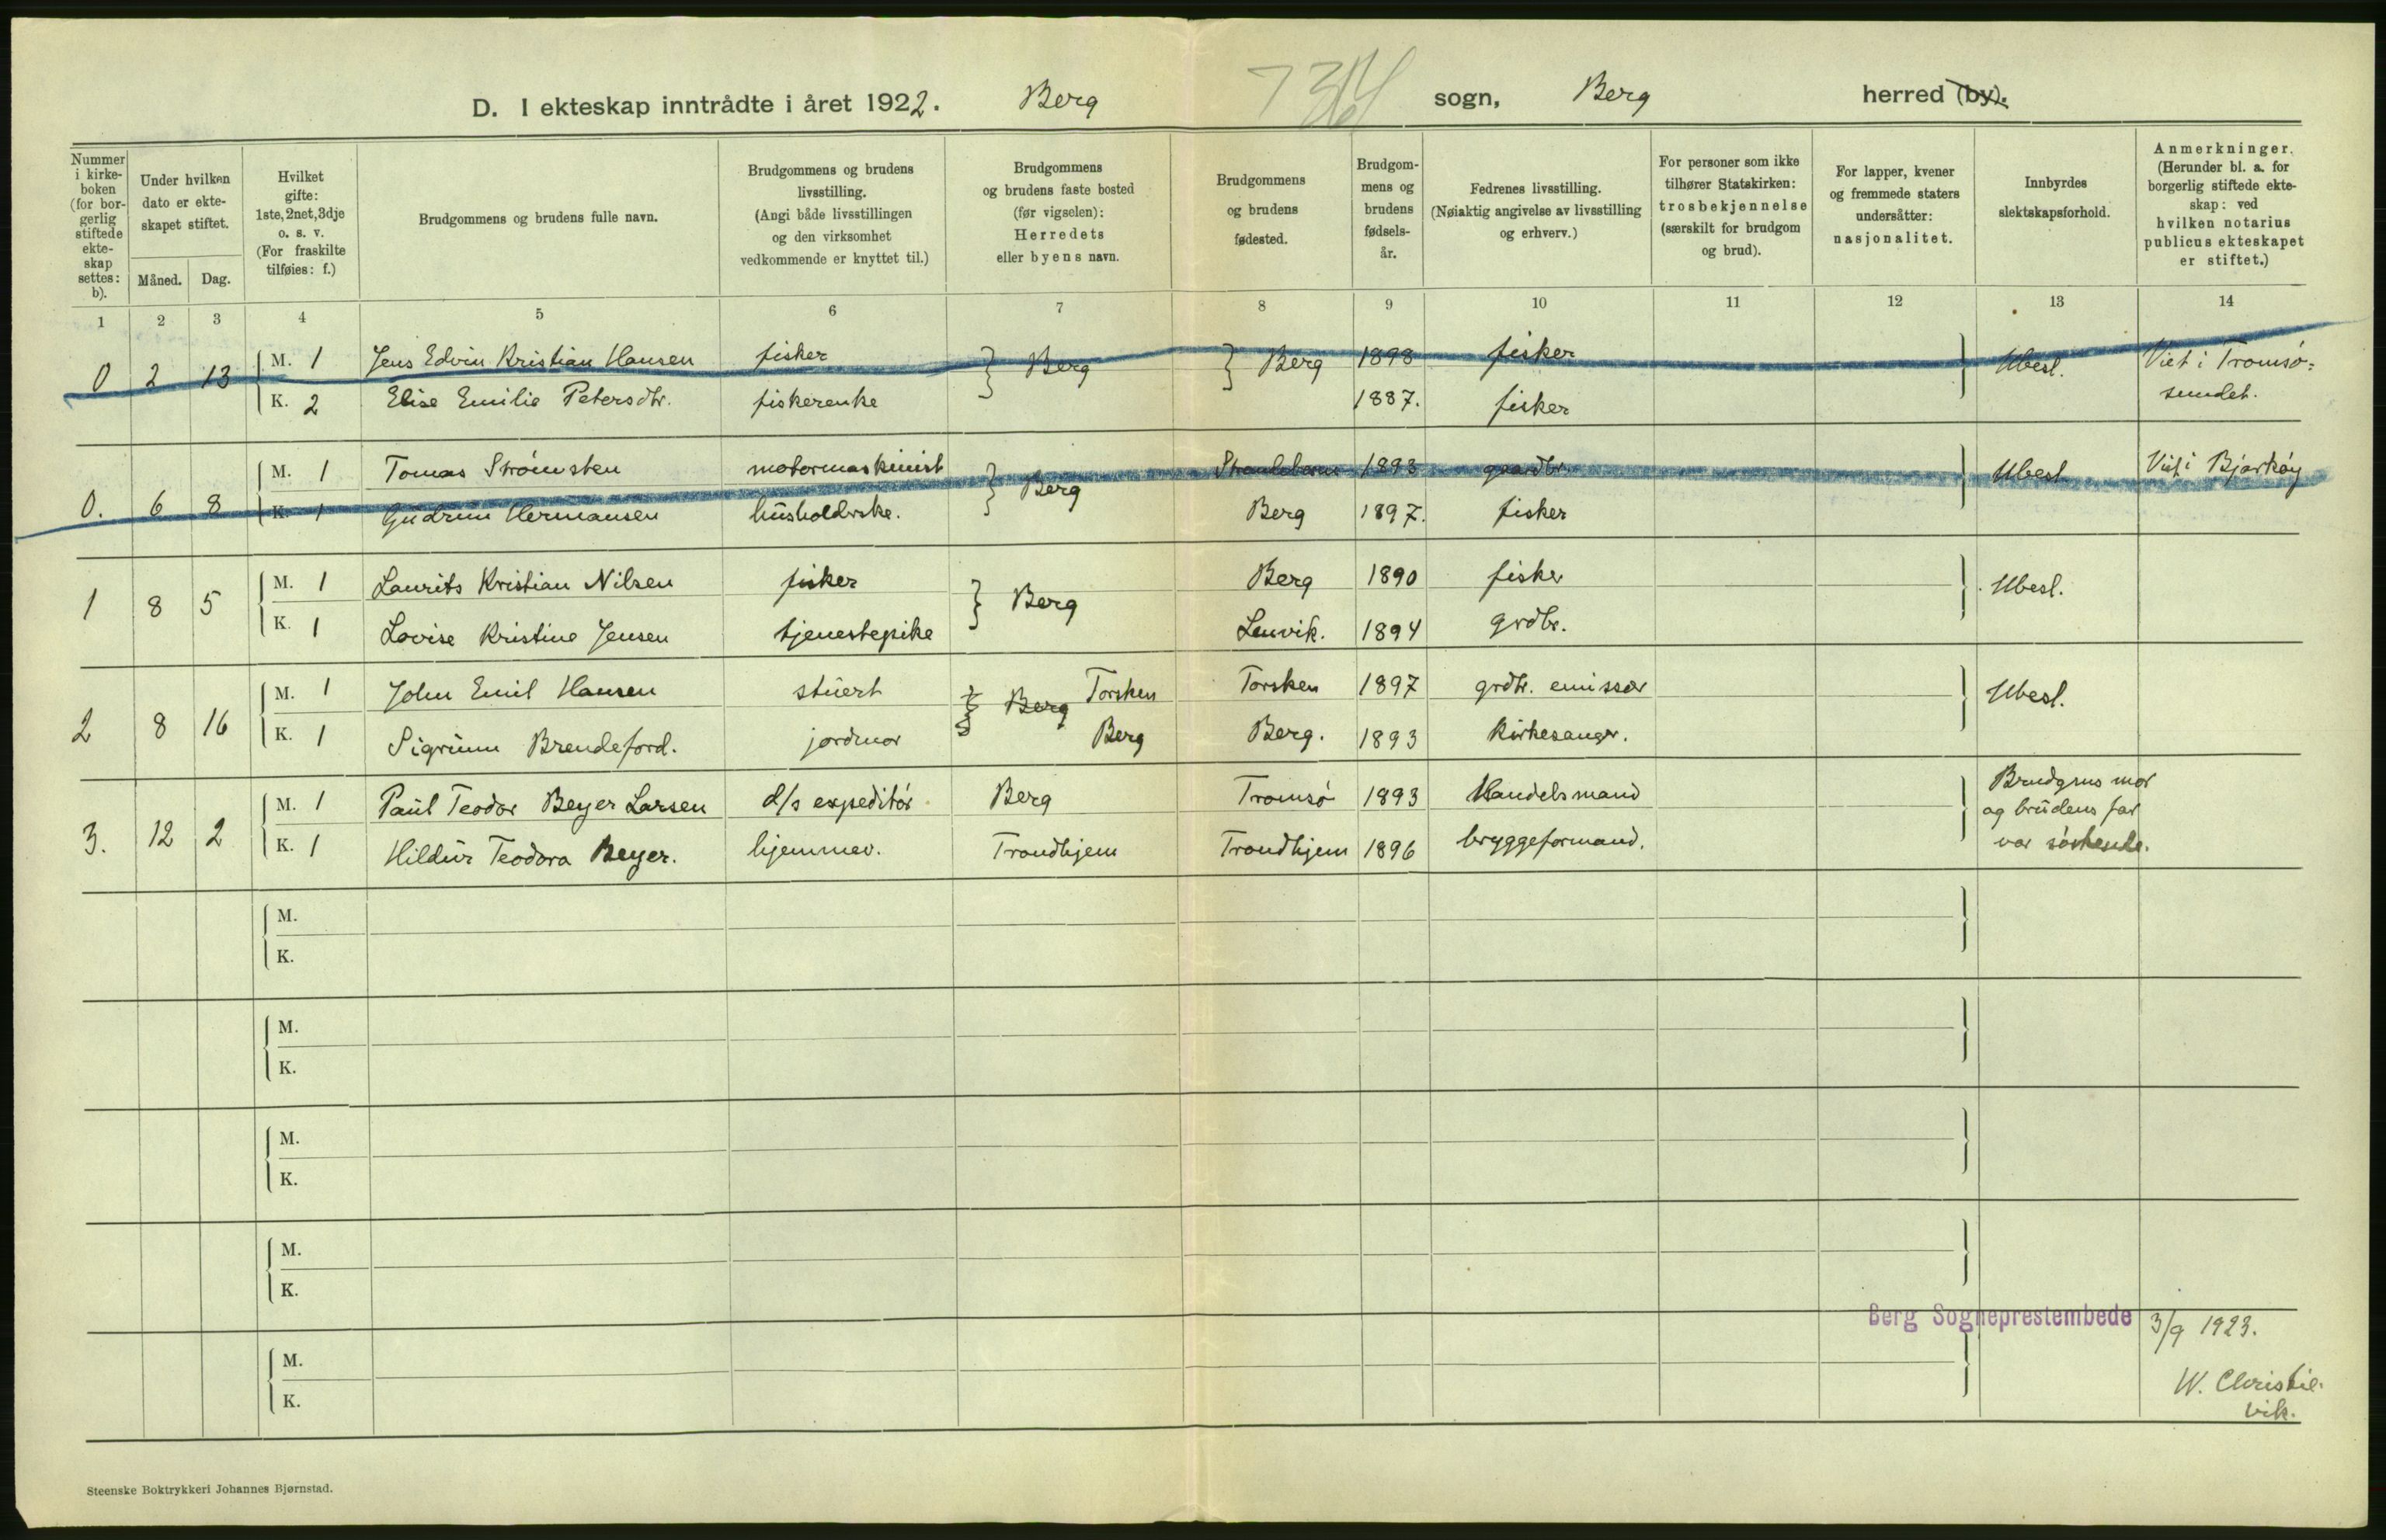 D. I ekteskap inntrådte i året 1922. Berg sogn, Berg herred (by).
Nummer i kirke-boken (for bor-gerlig stiftede ekte-skap settes: b).
Under hvilken dato er ekte-skapet stiftet.
Måned. Dag.
Hvilket gifte: 1ste, 2net, 3dje o. s. v. (For fraskilte tilføies: f.)
Brudgommens og brudens fulle navn.
Brudgommens og brudens livsstilling. (Angi både livsstillingen og den virksomhet vedkommende er knyttet til.)
Brudgommens og brudens faste bosted (før vigselen): Herredets eller byens navn.
Brudgommens og brudens fødested.
Brudgom-mens og brudens fødsels-år.
Fedrenes livsstilling. (Nøiaktig angivelse av livsstilling og erhverv.)
For personer som ikke tilhører Statskirken: trosbekjennelse (særskilt for brudgom og brud).
For lapper, kvener og fremmede staters undersåtter: nasjonalitet.
Innbyrdes slektskapsforhold.
Anmerkninger. (Herunder bl. a. for borgerlig stiftede ekte-skap: ved hvilken notarius publicus ekteskapet er stiftet.)
1 2 3 4 5 6 7 8 9 10 11 12 13 14
0 2 13 M. 1 Jens Edvin Kristian Hansen fisker Berg Berg 1898 fisker Ubesl. Viet i Tromsø=
K. 2 Elise Emilie Petersdtr. fiskerenke 1887. fisker sundet.
0. 6 8 M. 1 Tomas Strømsten motormaskinist Berg 1893 gaardbr. Ubesl. Viet i Bjarkøy
K. 1 Gudrun Hermansen husholdrske. Berg 1897. fisker
1 8 5 M. 1 Laurits Kristian Nilsen fisker Berg Berg 1890 fisker Ubesl.
K. 1 Lovise Kristine Jensen tjenestepike Lenvik. 1894 grdbr.
2 8 16 M. 1 John Emil Hansen stuert Berg Torsken Torsken 1897 grdbr. emissær Ubesl.
K. 1 Sigrunn Brendeford. jordmor Berg Berg. 1893 Kirkesanger.
3. 12 2 M. 1 Paul Teodor Beyer Larsen d/s expeditør Berg Tromsø 1893 Handelsmand Brudgms mor
og brudens far
K. 1 Hildur Teodora Beyer. hjemmev. Trondhjem Trondhjem 1896 bryggeformand. var søskende.
M.
K.
M.
K.
M.
K.
M.
K.
Berg Sogneprestembede 3/9 1923.
M.
K.
W. Christie
vik.
Steenske Boktrykkeri Johannes Bjørnstad.